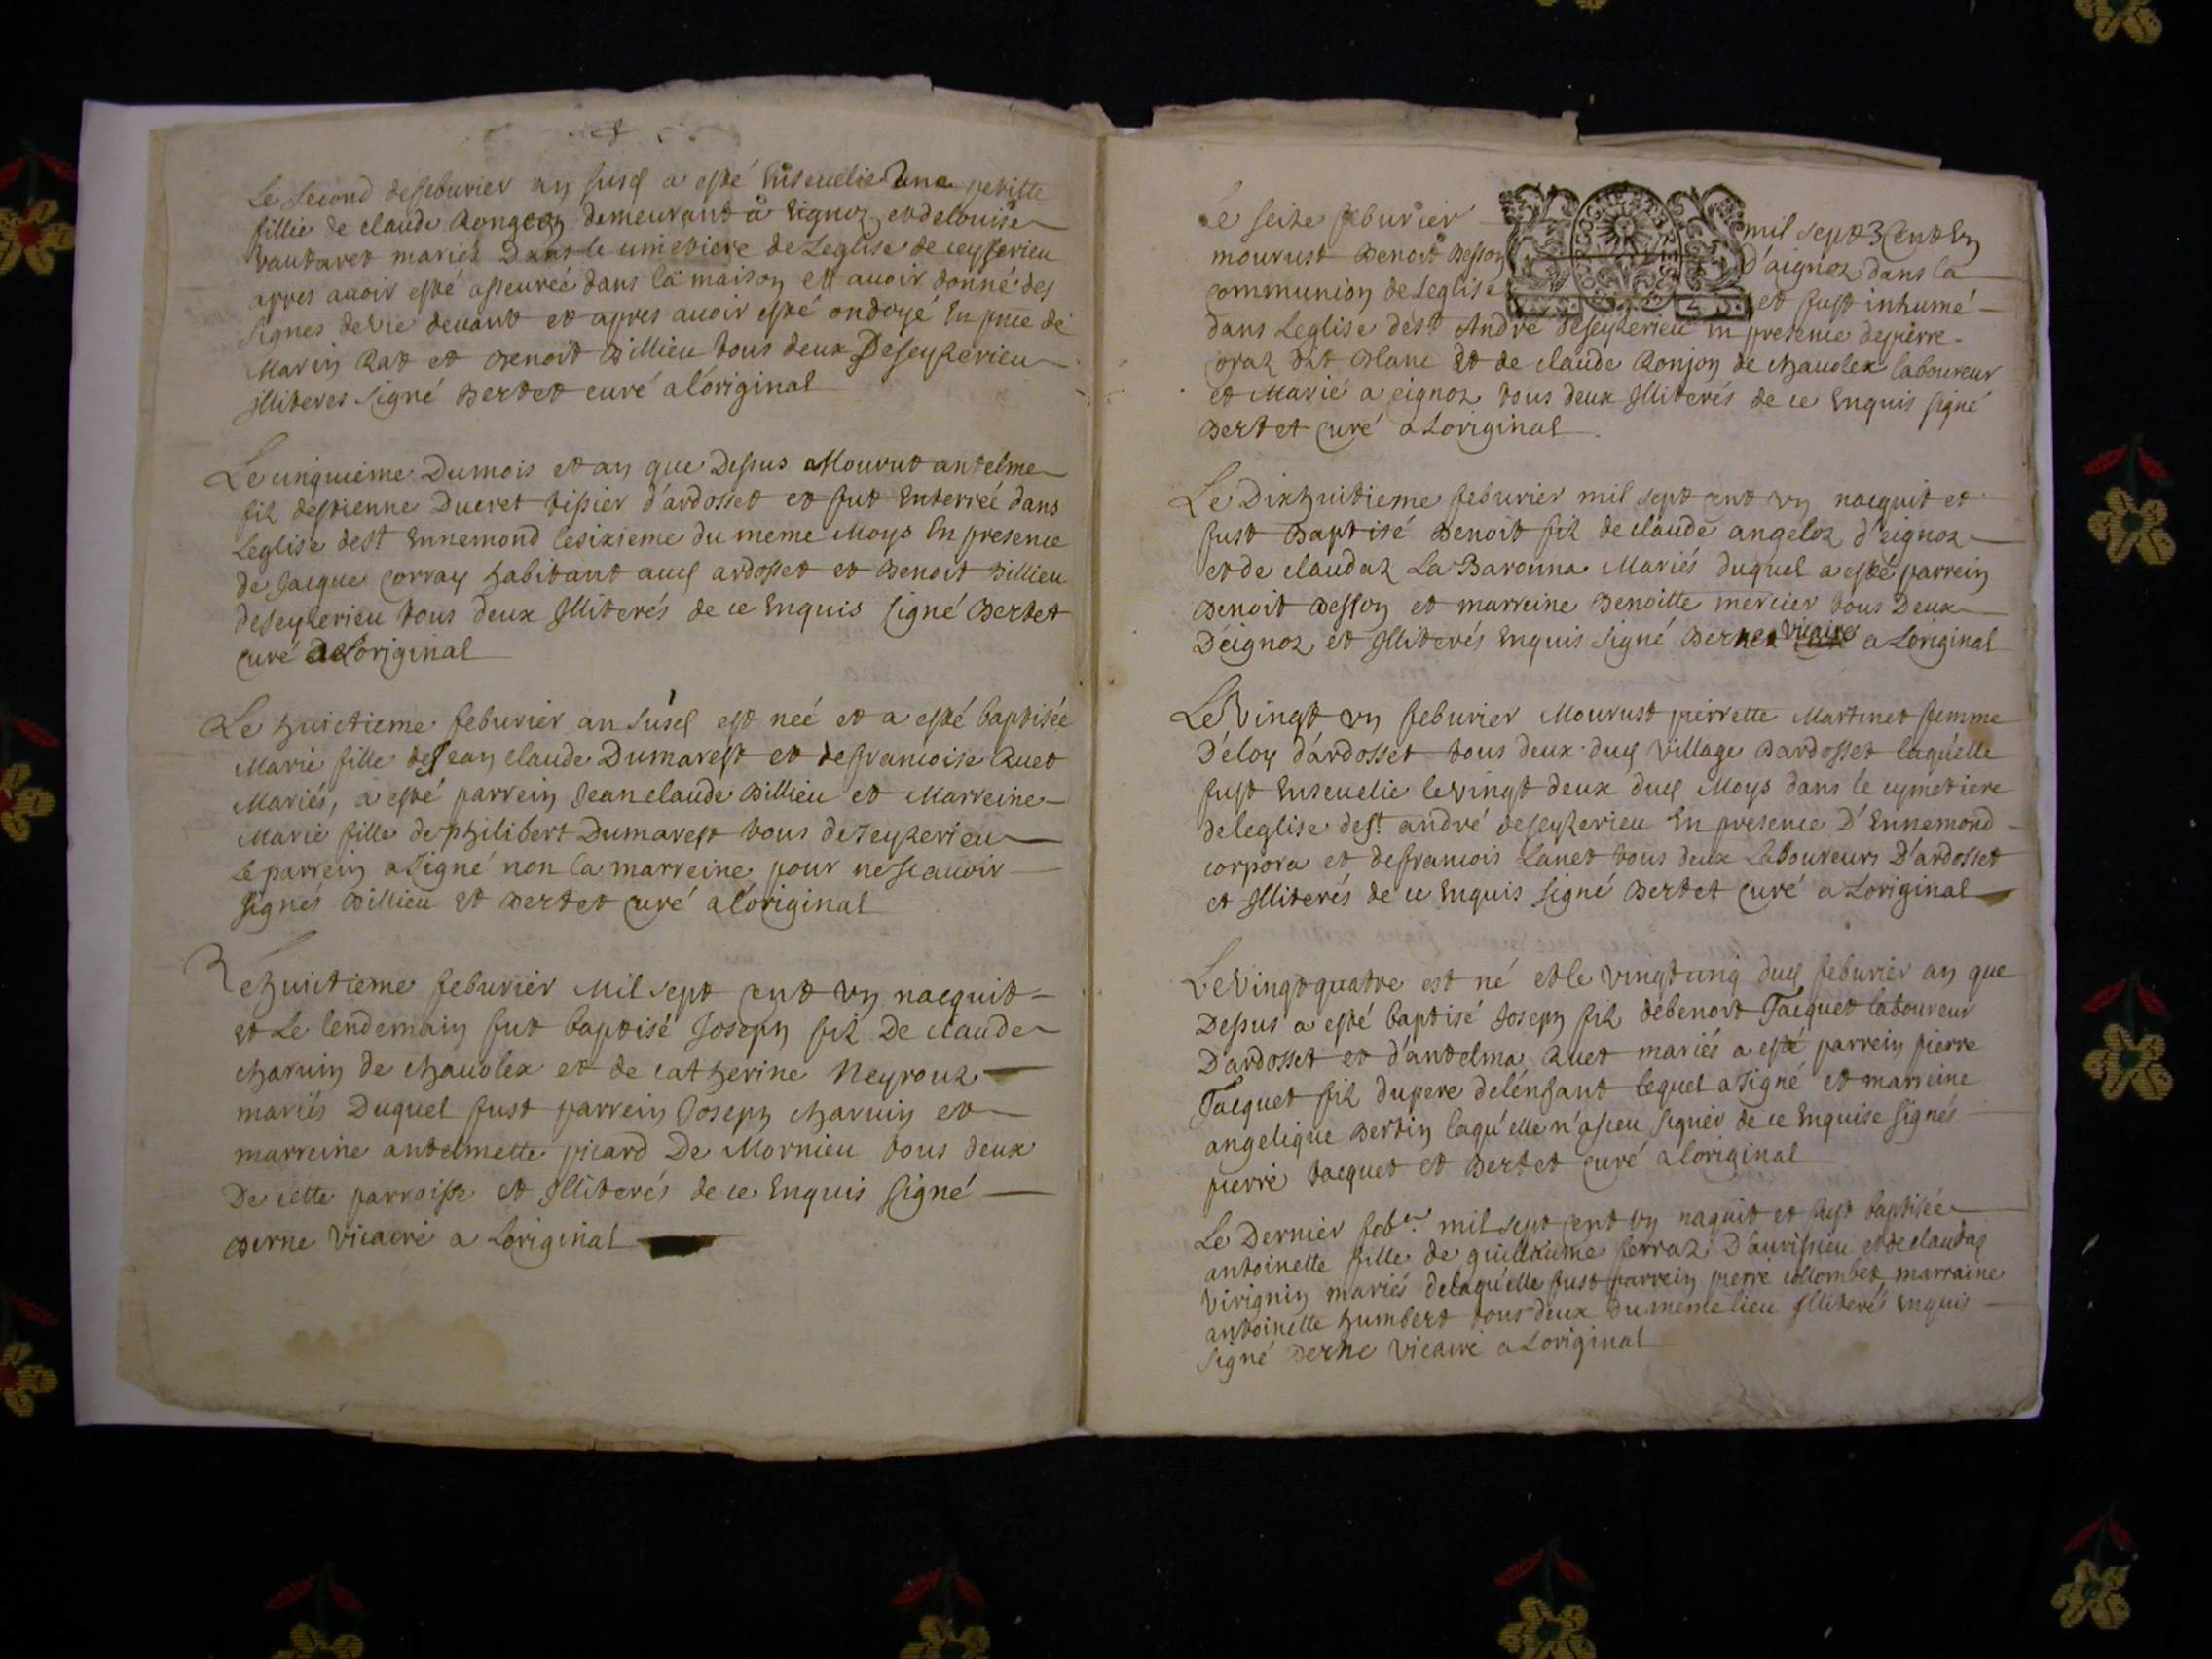 Le second defeburier an susd a esté Enseuelie Une petitte
fillie de claude Rongeon demeurant a Eignoz et de louise
vautaret mariés Dans le cimetiere de Leglise de ceyserieu
apres auoir esté asseureé dans la maison et auoir donné des
signes de Vie deuant et apres auoir esté ondoyé En pnce de
Marin Rat et Benoit Billieu tous deux De seyzerieu
Illiteres signé Bertet curé a loriginal
Le cinquieme Du mois et an que Dessus Mourut antelme
fiz destienne Ducret tissier d'ardosset et fut Enterreé dans
Leglise de st Ennemond le sixieme du meme Moys En presence
de Jacque corray habitant aud ardosset et Benoit Billieu
de seyzerieu tous deux Illiterés de ce Enquis signé Bertet
curé a Loriginal
Le huictieme feburier an susd est neé et a esté baptisée
Marie fille de Jean claude Dumarest et de francoise Ruet
Mariés, a esté parrein Jean claude Billieu et Marreine
Marie fille de philibert Dumarest tous de seyzerieu
le parrein a signé non la marreine pour ne scauoir
signés Billieu et Bertet curé a loriginal
Le huitieme feburier Mil sept cent vn nacquit
et Le lendemain fut baptisé Joseph fiz De claude
charuin de chauolex et de catherine Neyrouz
mariés Duquel fust parrein Joseph charuin et
marreine antelmette picard De Mornieu tous deux
De cette parroisse et Illiterés de ce Enquis signé
Berne vicaire a Loriginal
Le seize feburier mil sept Cent Vn
mourust Benoit Besson d'aignoz dans la
communion de Leglise et fust inhumé
dans Leglise de st André de seyzerieu En presence de pierre
oraz dit Blanc Et de claude Ronjon de chauolex laboureur
et Marié a eignoz tous deux Illiterés de ce Enquis signé
Bertet Curé a Loriginal
Le Dixhuitieme feburier mil sept cent vn nacquit et
fust Baptisé Benoit fiz de claude angeloz d'eignoz
et de claudaz La Baronna Mariés duquel a esté parrein
Benoit Besson et marreine Benoitte mercier tous Deux
Deignoz et Illiterés Enquis signé Berne Vicaire a Loriginal
Le Vingt vn feburier Mourust pierrette Martinet femme
D'eloy d'ardosset tous deux dud village Dardosset laquelle
fust Enseuelie le vingt deux dud Moys dans le cymetiere
de leglise de st andré de seyzerieu En presence D'Ennemond
corpora et de francois Lanet tous deux Laboureurs D'ardosset
et Illiterés de ce Enquis signé Bertet Curé a Loriginal
Le Vingt quatre est né et le vingt cinq dud feburier an que
Dessus a esté baptisé Joseph fiz de benoit Tacquet laboureur
D'ardosset et d'antelma Ruet mariés a esté parrein pierre
Tacquet fiz du pere de lenfant lequel a signé et marreine
angelique Bertin laquelle n'a sceu signer de ce Enquise signés
pierre tacquet et Bertet curé a loriginal
Le Dernier feb.er mil sept cent vn naquit et fust baptisée
antoinette fille de guillaume ferraz D'aurissieu et de claudaz
Virignin mariés de laquelle fust parrein pierre collombet marraine
antoinette humbert tous deux du meme lieu Illiterés Enquis
signé Berne vicaire a Loriginal